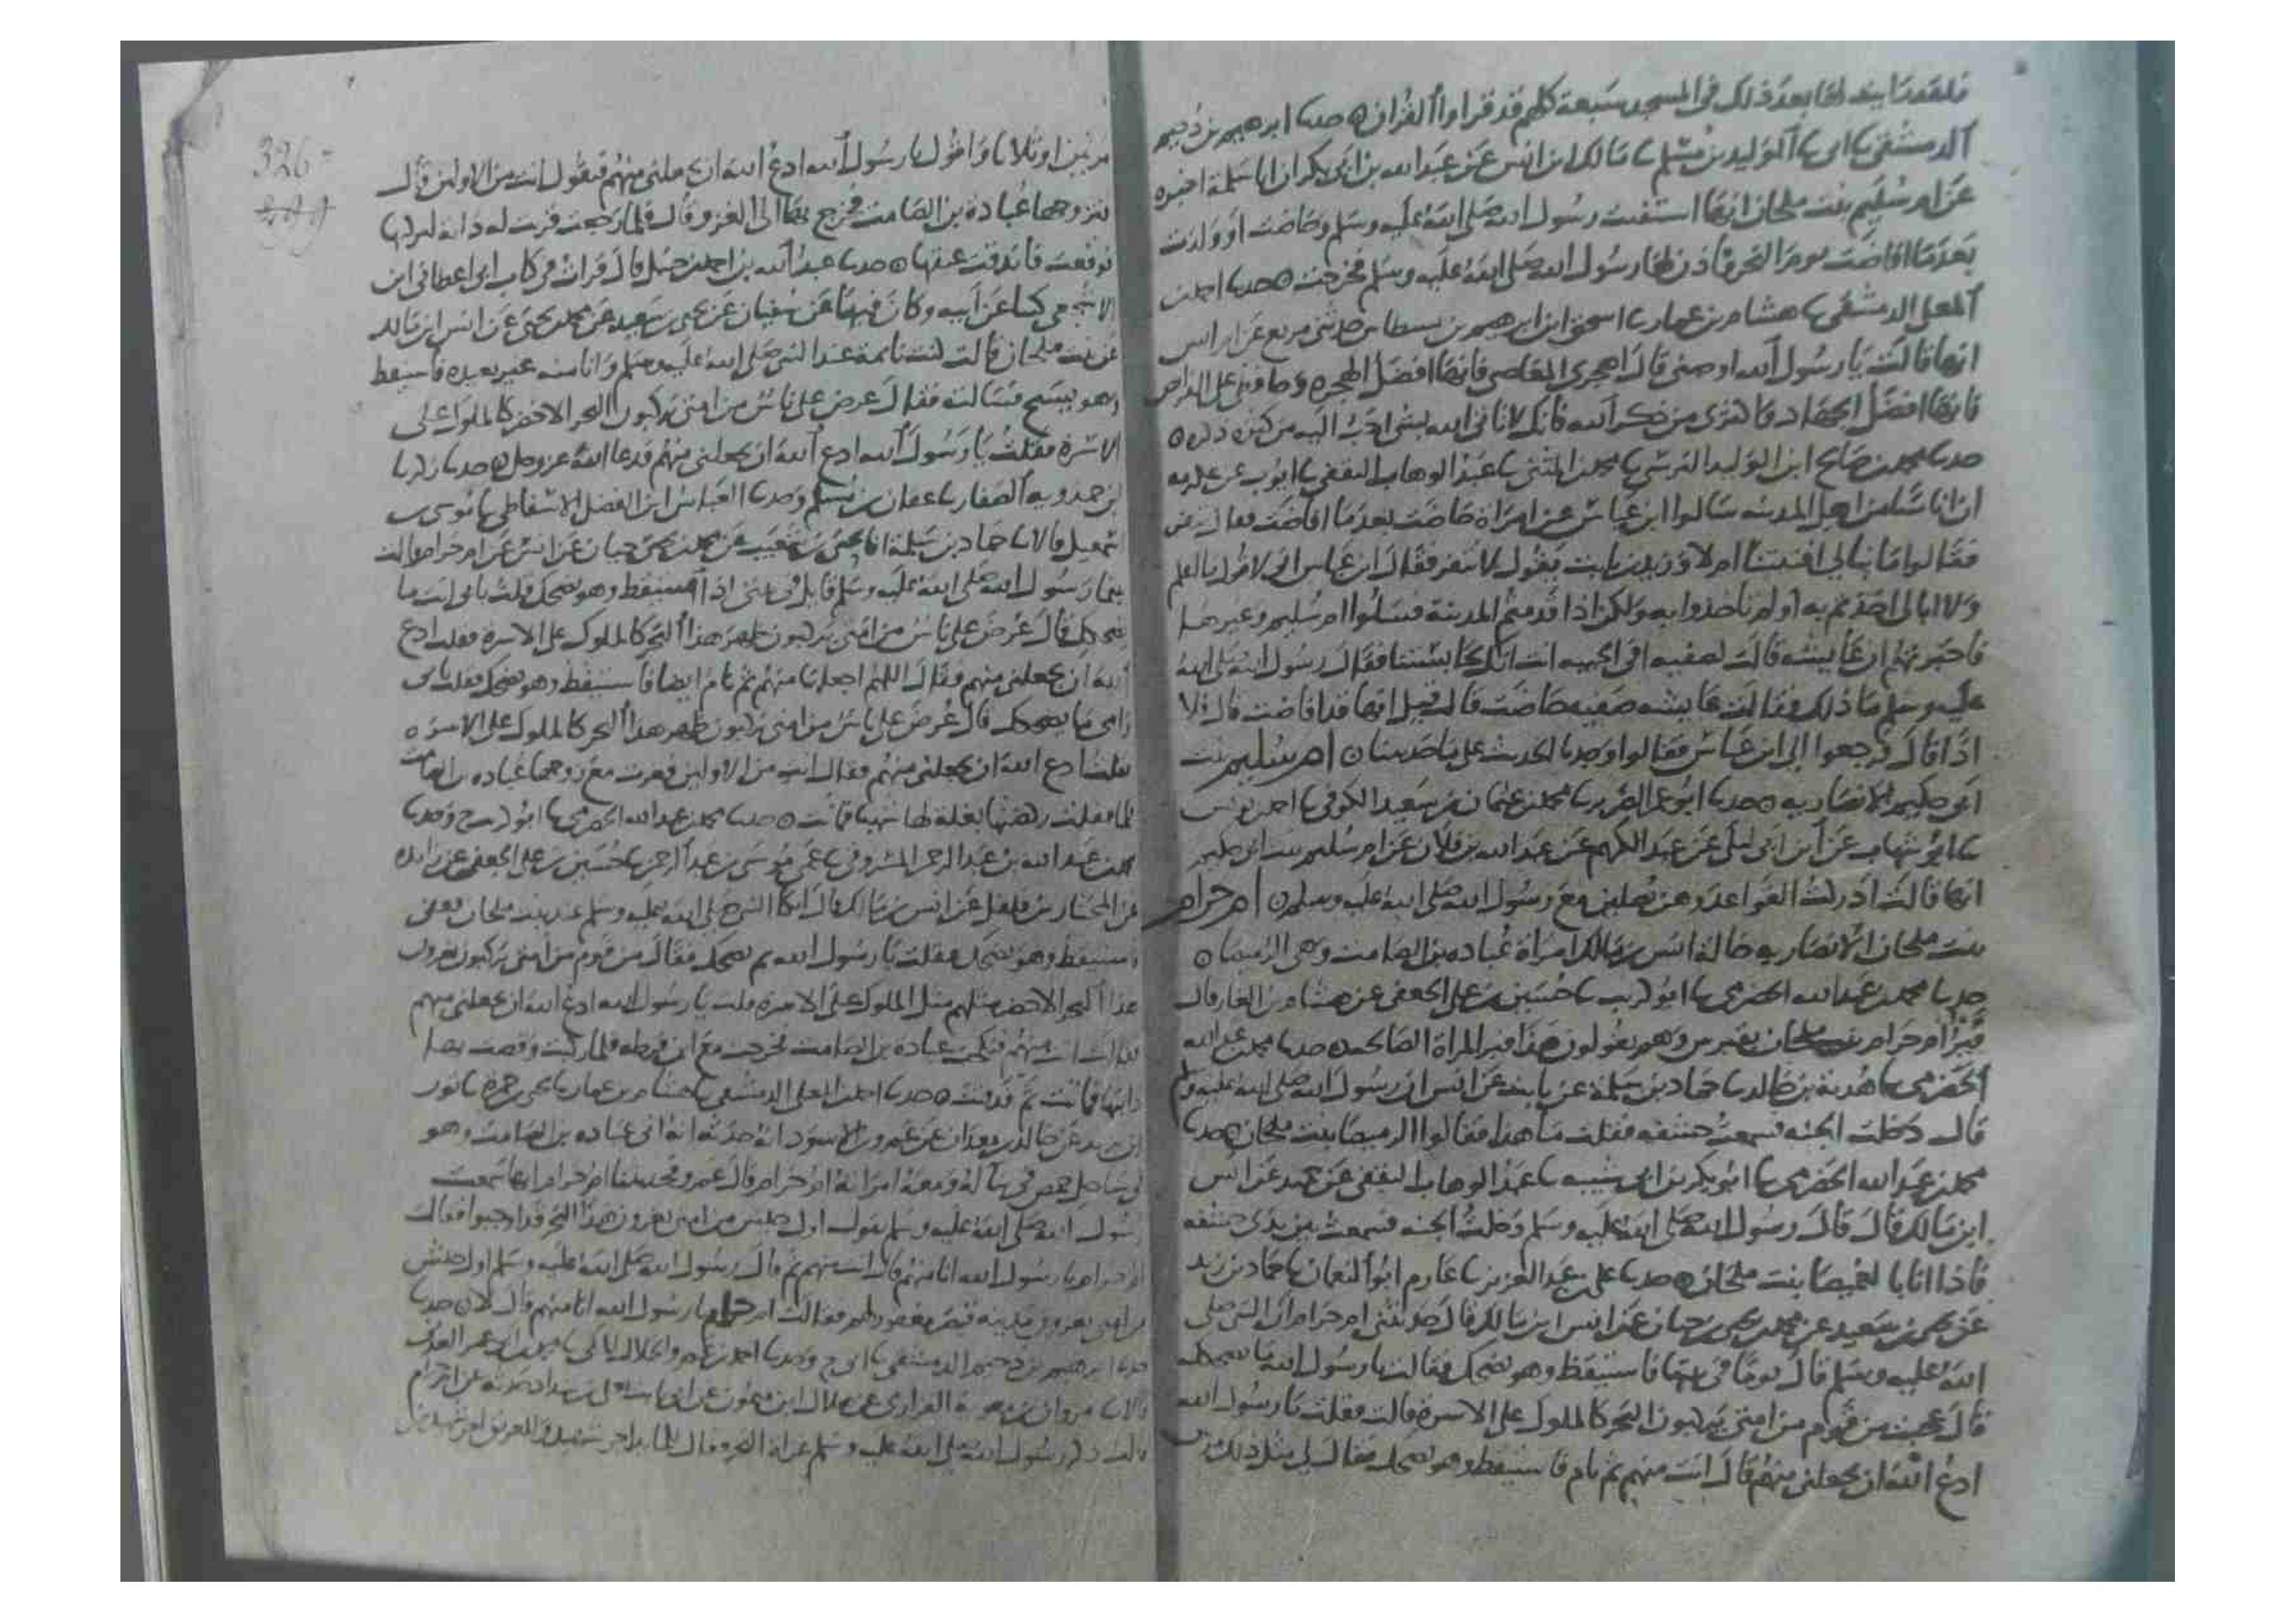 فلقد رايت لها بعد ذلك في المسجد سبعة كلهم قد قراوا القران ۞ حدثنا ابرهيم بن دحيم
الدمشقي نا ابي نا الوليد بن مسلم نا مالك ابن انس عن عبد الله بن ابي بكر ان ابا سلمة اخبره
عن ام سليم بنت ملحان انها استفتت رسول الله صلى الله عليه وسلم وحاضت او ولدت
بعدما افاضت يوم النحر فاذن لها رسول الله صلى الله عليه وسلم فخرجت ۞ حدثنا احمد بن
المعلى الدمشقي نا هشام بن عمار نا اسحق ابن ابرهيم بن نسطاس حدثني مربع عن ام انس
انها قالت يا رسول الله اوصني قال اهجري المعاصي فانها افضل الهجره وحافظي على الفرائض
فانها افضل الجهاد واكثري من ذكر الله فانك لا تاتي الله بشي احب اليه من كثرة ذكره ۞
حدثنا محمد بن صالح ابن الوليد النرسي نا محمد بن المثنى نا عبد الوهاب الثقفي نا ايوب عن عكرمه
ان اناسا من اهل المدينه سالوا ابن عباس عن امراة حاضت بعدما افاضت فقال تنفر
فقالوا ما نبالي افتيتنا ام لا وزيد بن ثابت يقول لا تنفر فقال ابن عباس اني لا اقول بالعلم
ولا ابالي اخذتم به او لم تاخذوا به ولكن اذا قدمتم المدينة فسلوا ام سليم وغيرها
فاخبرتهم ان عايشه قالت لصفيه افي الخيبه انت انك لحابستنا فقال رسول الله صلى الله
عليه وسلم ما ذلك فقالت عايشه صفيه حاضت قالت قيل انها قد افاضت قال فلا
اذا قال فرجعوا الى ابن عباس فقالوا وجدنا الحديث على ما حدثتنا ۞ ام سليم بنت
ابي حكيم الانصاريه ۞ حدثنا ابو عمر الضرير نا محمد بن عثمان بن سعيد الكوفي نا احمد بن يونس
نا ابو شهاب عن ابن ابي ليلى عن عبد الكريم عن عبد الله بن فلان عن ام سليم بنت ابي حكيم
انها قالت ادركت القواعد وهن يصلين مع رسول الله صلى الله عليه وسلم ۞ ام حرام
بنت ملحان الانصاريه خالة انس بن مالك امراة عباده بن الصامت وهي الرميصا ۞
حدثنا محمد بن عبد الله الحضرمي نا ابو كريب نا حسين بن علي الجعفي عن هشام بن الغاز قال
قبر ام حرام بنت ملحان بقبرس وهم يقولون هذا قبر المراة الصالحه ۞ حدثنا محمد بن عبد الله
الحضرمي نا هدبة بن خالد نا حماد بن سلمة عن ثابت عن انس ان رسول الله صلى الله عليه وسلم
قال دخلت الجنه فسمعت خشفه فقلت ما هذا فقالوا الرميصا بنت ملحان ۞ حدثنا
محمد بن عبد الله الحضرمي نا ابو بكر بن ابي شيبه نا عبد الوهاب الثقفي عن حميد عن انس
ابن مالك قال قال رسول الله صلى الله عليه وسلم دخلت الجنه فسمعت بين يدي خشفه
فاذا انا بالغميصا بنت ملحان ۞ حدثنا علي بن عبد العزيز نا عارم ابو النعمان نا حماد بن زيد
عن يحيى بن سعيد عن محمد بن يحيى بن حبان عن انس ابن مالك قال حدثتني ام حرام ان النبي صلى
الله عليه وسلم قال يوما في بيتها فاستيقظ وهو يضحك فقالت يا رسول الله ما يضحكك
قال عجبت من قوم من امتي يركبون البحر كالملوك على الاسرة قالت فقلت يا رسول الله
ادع الله ان يجعلني منهم قال انت منهم ثم نام فاستيقظ وهو يضحك فقال لي مثل ذلك
326
مرتين او ثلاثا واقول يا رسول الله ادع الله ان يجعلني منهم فيقول انت من الاولين قال
فتزوجها عبادة بن الصامت فخرج بها الى الغزو قال فلما رجعت قربت له دابة لتركبها
فوقعت فاندقت عنقها ۞ حدثنا عبد الله بن احمد بن حنبل قال قرات في كتاب ابي اعطاني ابن
الاشجعي كتبا عن ابيه وكان فيها عن سفيان عن يحيى بن سعيد عن محمد بن يحيى عن انس ابن مالك
عن بنت ملحان قالت كنت نائمة عند النبي صلى الله عليه وسلم وانا منه غير بعيده فاستيقظ
وهو يتبسم فسالته فقال عرض علي ناس من امتي يركبون البحر الاخضر كالملوك على
الاسرة فقلت يا رسول الله ادع الله ان يجعلني منهم فدعا الله عز وجل ۞ حدثنا زكريا
ابن حمدويه الصفار نا عفان بن مسلم وحدثنا العباس ابن الفضل الاسفاطي نا موسى بن
اسمعيل قالا نا حماد بن سلمة انا يحيى بن سعيد عن محمد بن يحيى بن حبان عن انس عن ام حرام قالت
بينما رسول الله صلى الله عليه وسلم قايل في بيتي اذ استيقظ وهو يضحك فقلت بابي انت ما
يضحكك قال عرض علي ناس من امتي يركبون ظهر هذا البحر كالملوك على الاسرة فقلت ادع
الله ان يجعلني منهم فقال اللهم اجعلها منهم ثم نام ايضا فاستيقظ وهو يضحك فقلت بابي
وامي ما يضحكك قال عرض علي ناس من امتي يركبون ظهر هذا البحر كالملوك على الاسره
فقلت ادع الله ان يجعلني منهم فقال انت من الاولين فغزت مع زوجها عباده بن الصامت
فلما قفلت رفصتها بغلة لها شهبا فماتت ۞ حدثنا محمد بن عبد الله الحضرمي نا ابو كريب ح وحدثنا
محمد بن عبد الله بن عبد الرحمن المسروقي نا عمي موسى بن عبد الرحمن نا حسين بن علي الجعفي عن زايده
عن المختار بن فلفل عن انس بن مالك قال اتكا النبي صلى الله عليه وسلم عند بنت ملحان
فاستيقظ وهو يضحك فقلت يا رسول الله مم تضحك فقال من قوم من امتي يركبون
هذا البحر الاخضر مثلهم مثل الملوك على الاسرة قلت يا رسول الله ادع الله ان يجعلني منهم
قال انت منهم فنكحت عباده بن الصامت فخرجت مع ابن قرظه فلما وقصت بها
دابتها فماتت ثم دفنت ۞ حدثنا احمد بن المعلى الدمشقي نا هشام بن عمار نا يحيى بن حمزة نا ثور
ابن يزيد عن خالد بن معدان عن عمير بن الاسود انه حدثه انه اتى عباده بن الصامت وهو
في ساحل حمص في بنا له ومعه امراته ام حرام قال عمير وفحدثتنا ام حرام انها سمعت
رسول الله صلى الله عليه وسلم يقول اول جيش من امتي يغزون هذا البحر قد اوجبوا فقالت
ام حرام يا رسول الله انا منهم قال انت منهم ثم قال رسول الله صلى الله عليه وسلم اول جيش
من امتي يغزون مدينة قيصر مغفور لهم فقالت ام حرام يا رسول الله انا منهم قال لا ۞ حدثنا
ابرهيم بن دحيم الدمشقي نا ابي ح وحدثنا احمد بن
قالا نا مروان بن معويه الفزاري عن هلال ابن ميمون عن ام حرام
قالت ذكر رسول الله صلى الله عليه وسلم غزاة البحر فقال للمايد اجر شهيد وللغريق اجر شهيدين